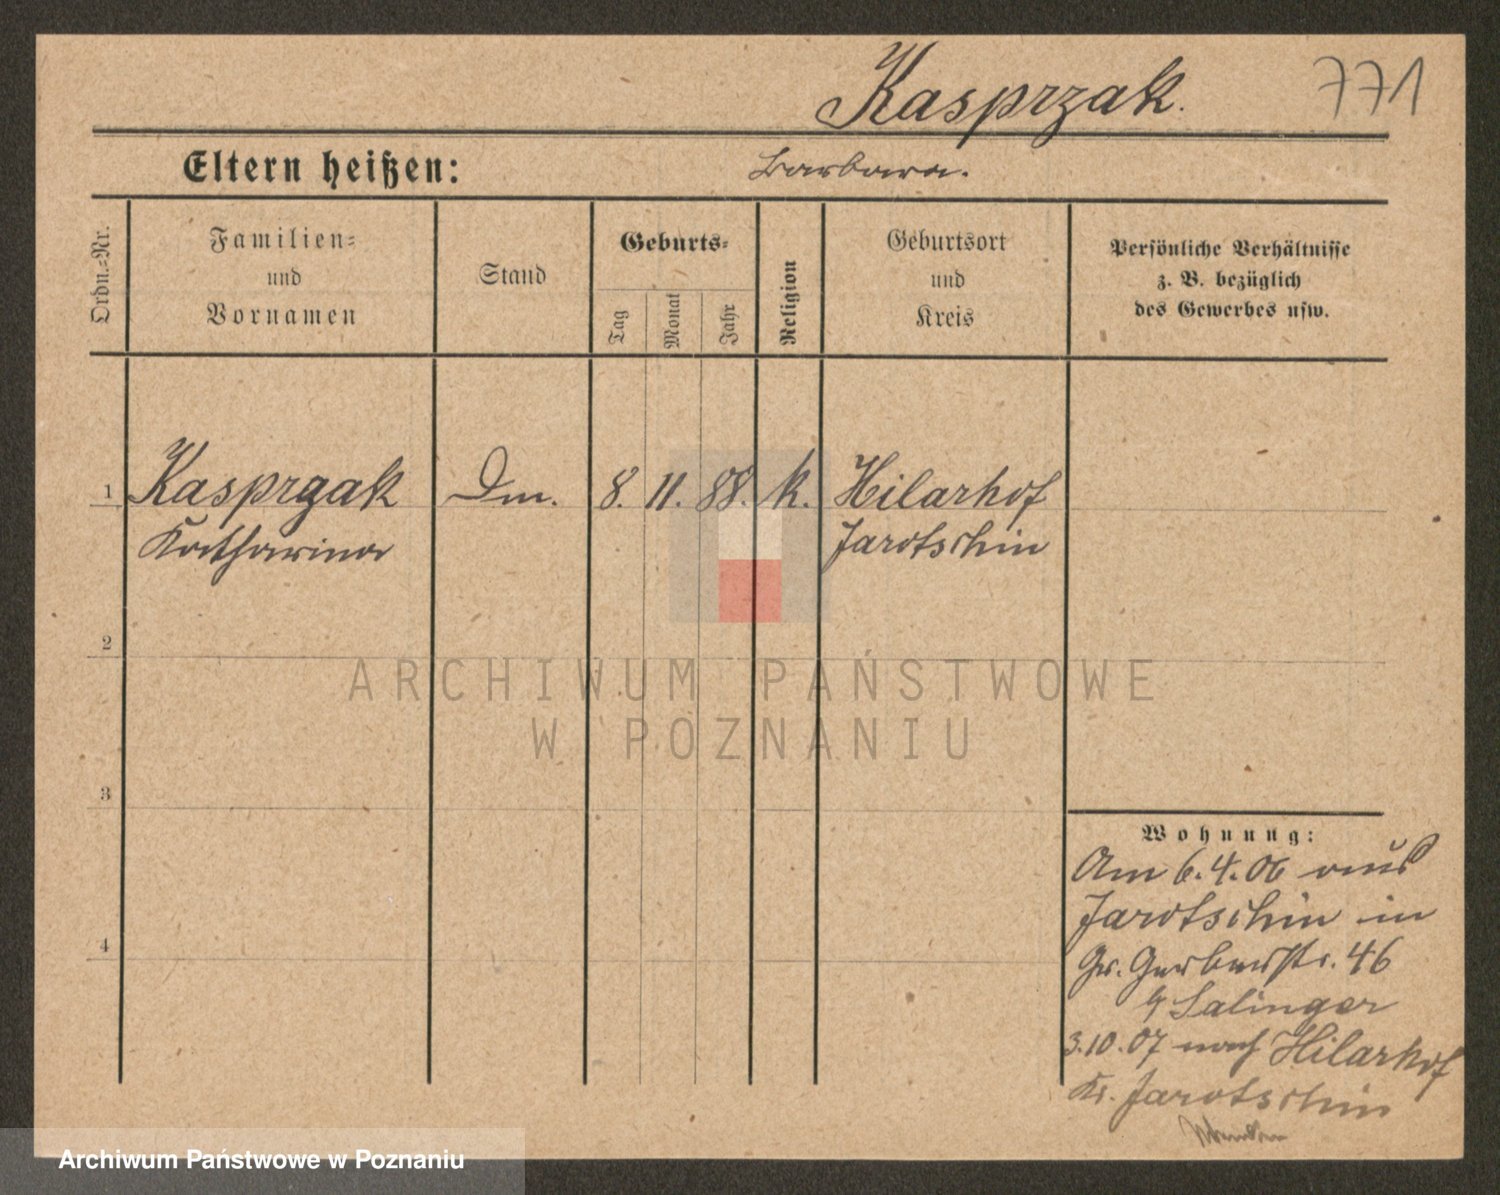 Kasprzak.
771
Eltern heißen:
Barbara.
Ordn.=Nr.
Familien=
und
Vornamen
Stand
Geburts=
Tag
Monat
Jahr
Religion
Geburtsort
und
Kreis
Persönliche Verhältnisse
z. B. bezüglich
des Gewerbes usw.
1
Kasprzak
Katharina
Dm.
8. 11. 88.
k.
Hilarhof
Jarotschin
2
3
4
Wohnung:
Am 6.4.06 aus
Jarotschin in
Gr. Gerberstr. 46
b/ Salinger
3.10.07 nach Hilarhof
Kr. Jarotschin
ARCHIWUM PAŃSTWOWE
W POZNANIU
Archiwum Państwowe w Poznaniu